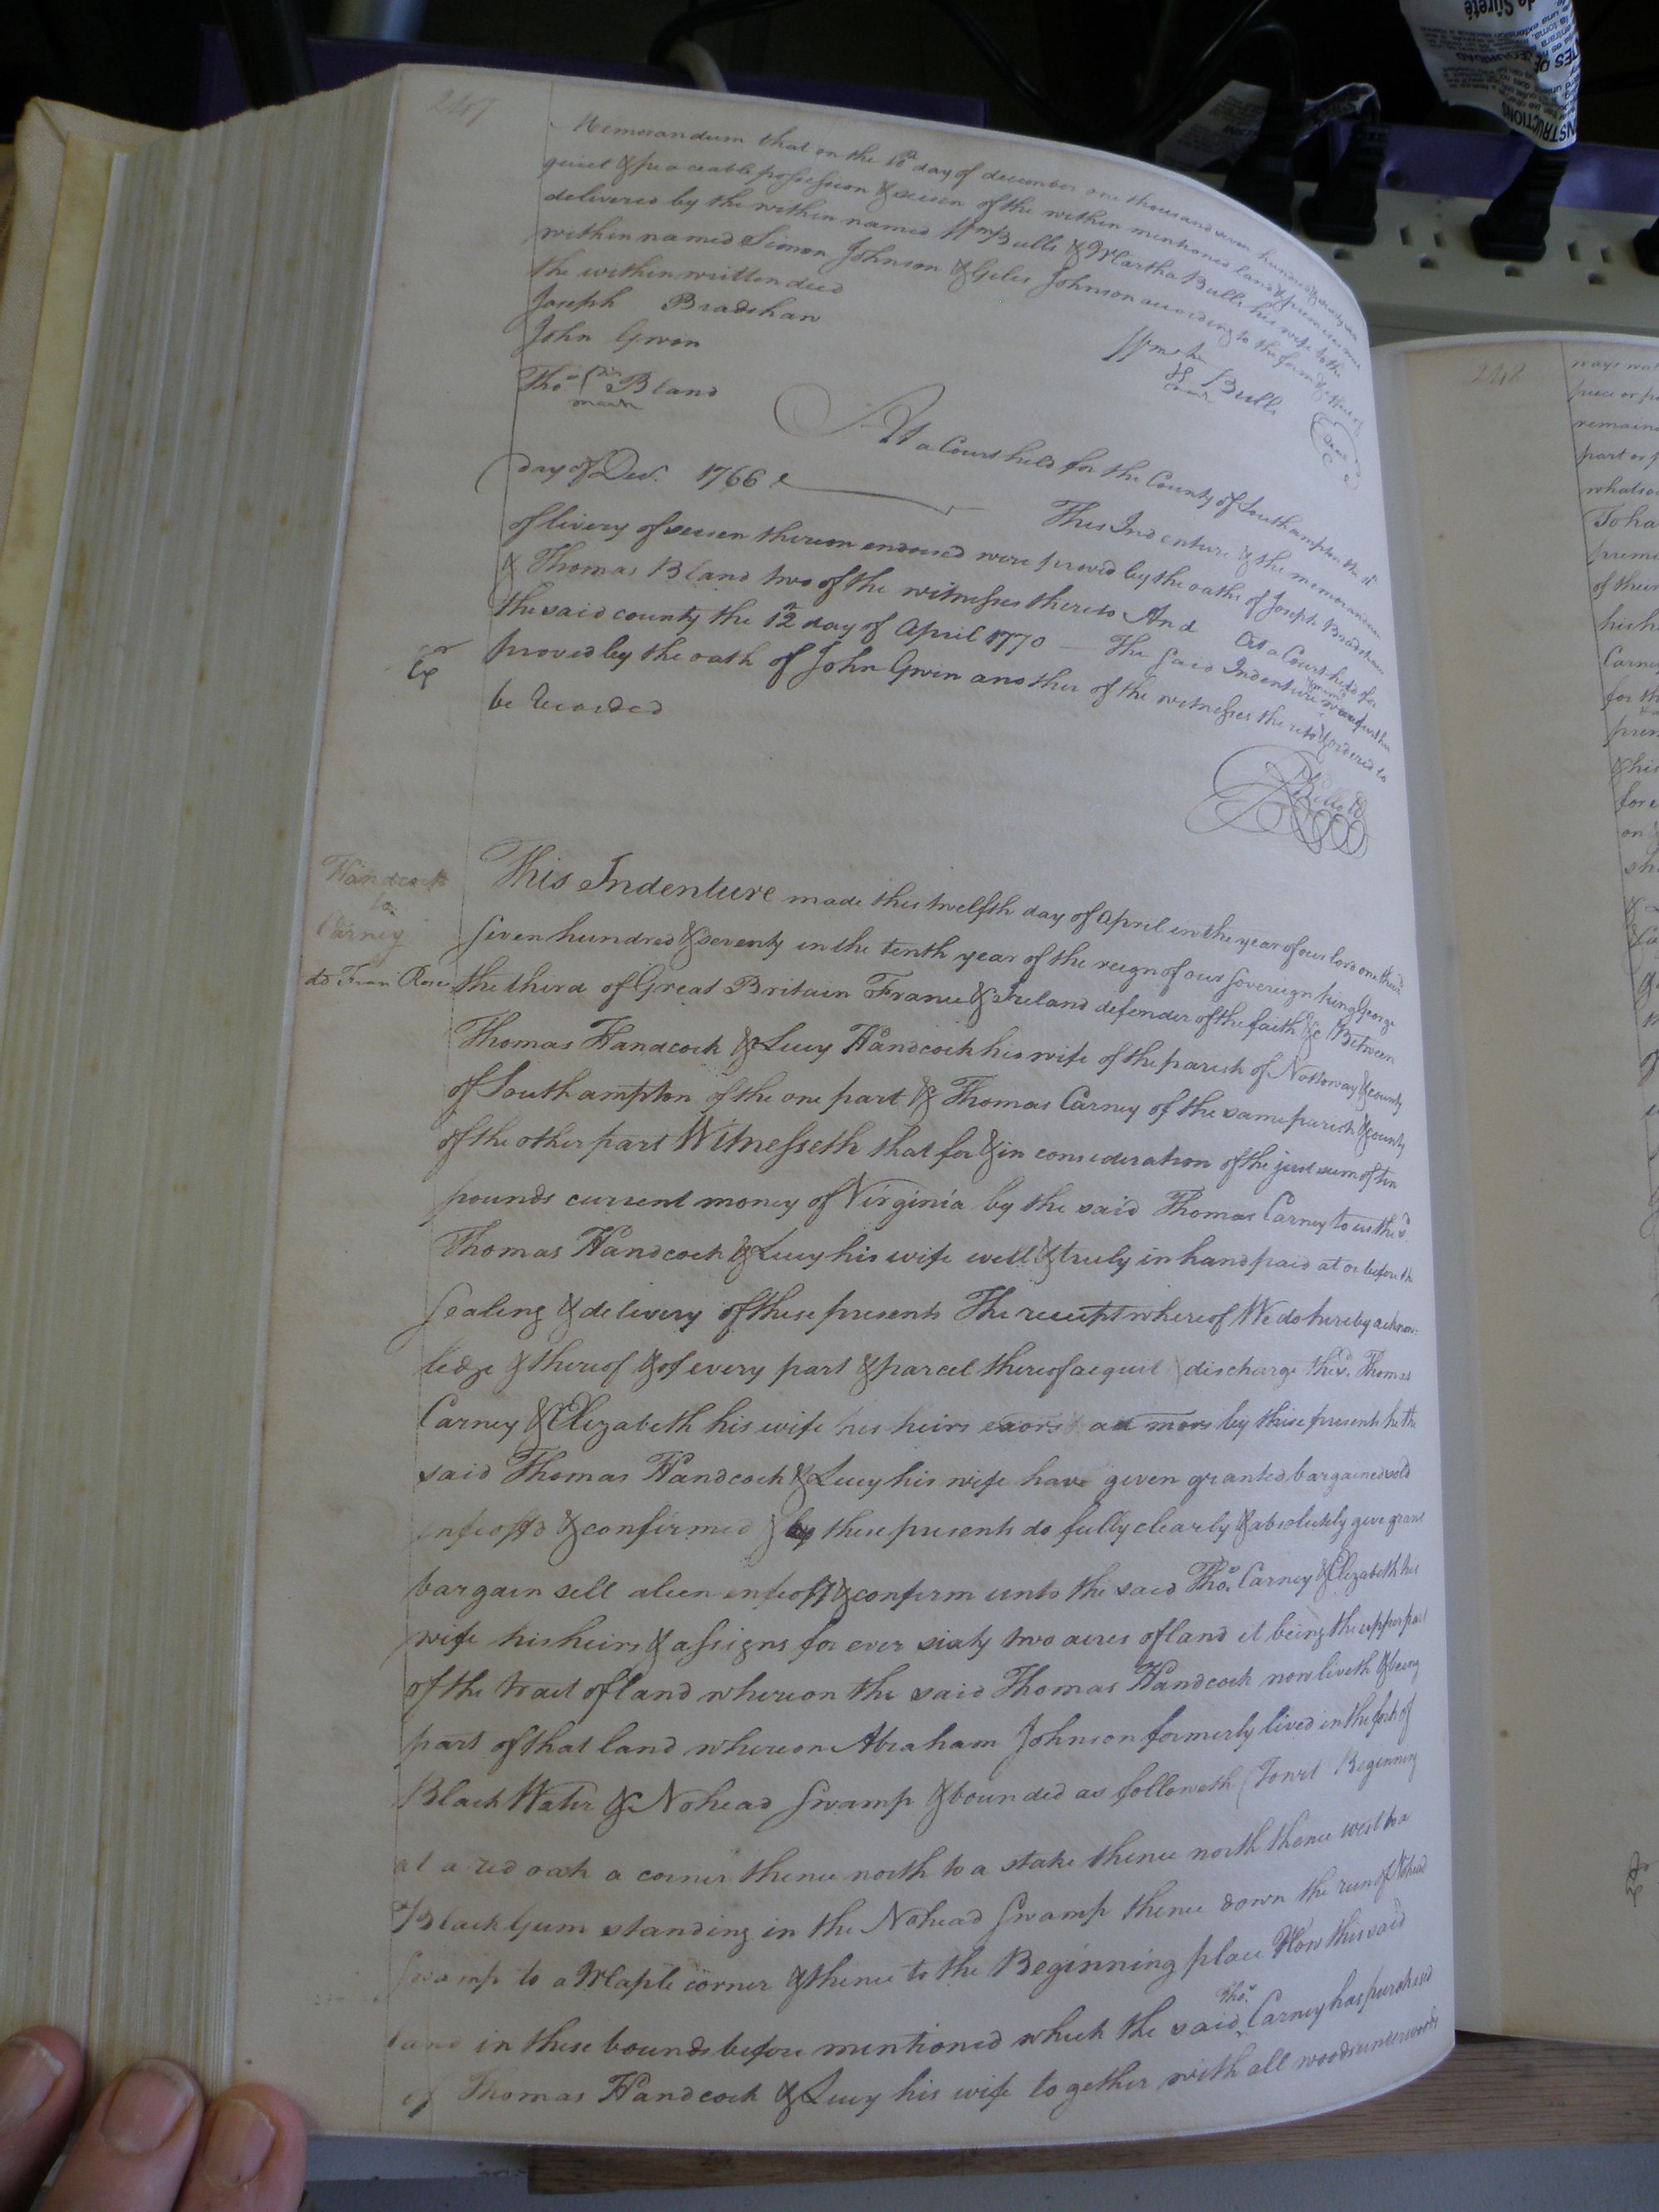 247
Memorandum that on the 10th day of december one thousand seven hundred & sixty six
quiet & peaceable possession & seisen of the within mentioned land & premises were
delivered by the within named Wm Bulls & Martha Bulls his wife to the
within named Simon Johnson & Giles Johnson according to the form &
the within written deed
Joseph Bradshaw
John Gwin
Thos his Bland
mark
Wm his
Bulls
mark
At a Court held for the County of Southampton the 11th
day of Decr. 1766
This Indenture & the memorandum
of livery of seisen thereon endorsed were proved by the oaths of Joseph Bradshaw
& Thomas Bland two of the witnesses thereto And At a Court held for
the said county the 12th day of April 1770 — The said Indenture
proved by the oath of John Gwin another of the witnesses thereto & ordered to
be Recorded
Ex
Handcock
to
Carney
This Indenture made this twelfth day of April in the year of our lord one thousd
Seven hundred & seventy in the tenth year of the reign of our Sovereign king George
dd Fran Rose
the third of Great Britain France & Ireland defender of the faith &c Between
Thomas Handcock & Lucy Handcock his wife of the parish of Nottoway & county
of Southampton of the one part & Thomas Carney of the same parish & county
of the other part Witnesseth that for & in consideration of the just sum of ten
pounds current money of Virginia by the said Thomas Carney to us the sd
Thomas Handcock & Lucy his wife well & truly in hand paid at or before the
Sealing & delivery of these presents The receipt whereof We do hereby acknow:
ledge & thereof & of every part & parcel thereof acquit discharge the sd. Thomas
Carney & Elizabeth his wife his heirs exors admors by these presents he the
said Thomas Handcock & Lucy his wife have given granted bargained sold
enfeoffd & confirmed & by these presents do fully clearly & absolutely give grant
bargain sell alien enfeoff & confirm unto the said Thos. Carney & Elizabeth his
wife his heirs & assigns for ever sixty two acres of land it being the upper part
of the tract of land whereon the said Thomas Handcock now liveth & being
part of that land whereon Abraham Johnson formerly lived in the fork of
Black Water & Nohead Swamp & bounded as followeth (Towit Beginning
at a red oak a corner thence north to a stake thence north thence west to a
Black Gum standing in the Nohead Swamp thence down the run of Nohead
Swamp to a Maple corner & thence to the Beginning place Now this said
land in these bounds before mentioned which the said Thos. Carney has purchased
of Thomas Handcock & Lucy his wife together with all woods underwoods
248